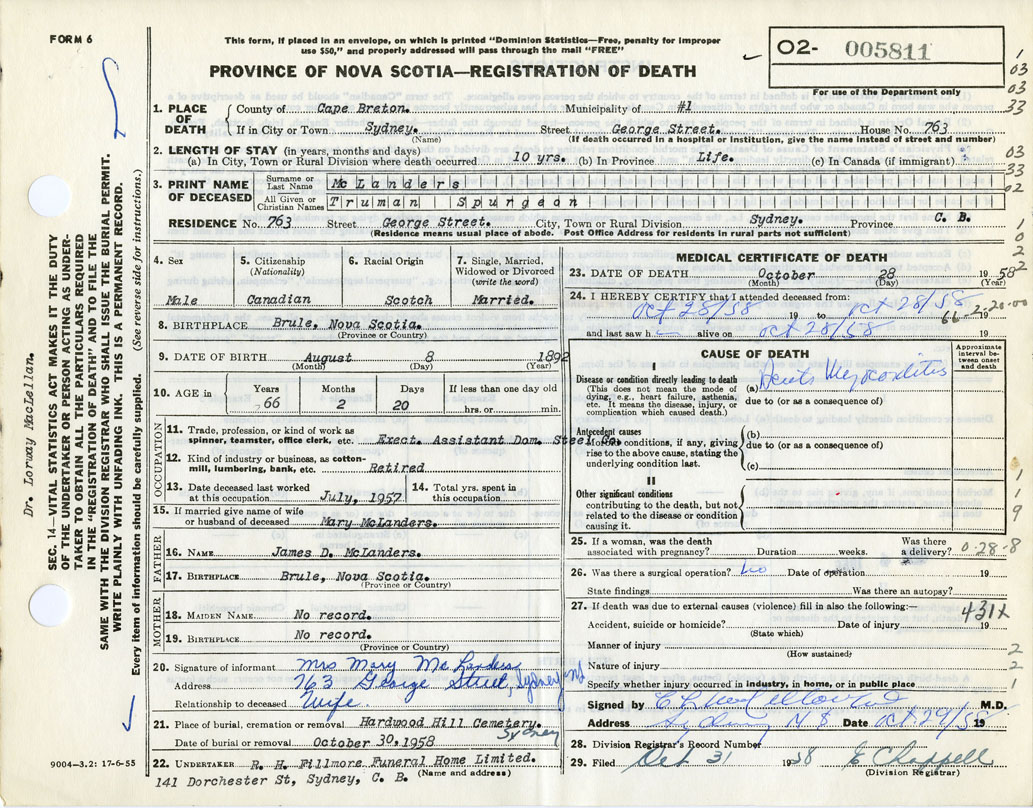 FORM 6
This form, if placed in an envelope, on which is printed "Dominion Statistics—Free, penalty for improper
use $50," and properly addressed will pass through the mail "FREE"
02- 005811
For use of the Department only
PROVINCE OF NOVA SCOTIA—REGISTRATION OF DEATH
1. PLACE OF DEATH
County of Cape Breton. Municipality of #1
If in City or Town Sydney. Street George Street. House No. 763
(Name) (If death occurred in a hospital or institution, give the name instead of street and number)
2. LENGTH OF STAY (in years, months and days)
(a) In City, Town or Rural Division where death occurred 10 yrs. (b) In Province Life. (c) In Canada (if immigrant)
3. PRINT NAME OF DECEASED
Surname or Last Name McLanders
All Given or Christian Names Truman Spurgean
RESIDENCE No. 763 Street George Street. City, Town or Rural Division Sydney. Province C. B.
(Residence means usual place of abode. Post Office Address for residents in rural parts not sufficient)
4. Sex Male
5. Citizenship (Nationality) Canadian
6. Racial Origin Scotch
7. Single, Married, Widowed or Divorced (write the word) Married.
8. BIRTHPLACE Brule. Nova Scotia.
(Province or Country)
9. DATE OF BIRTH August 8 1892
(Month) (Day) (Year)
10. AGE in Years 66 Months 2 Days 20 If less than one day old hrs. or min.
OCCUPATION
11. Trade, profession or kind of work as
spinner, teamster, office clerk, etc. Exect. Assistant Dom. Steel Co.
12. Kind of industry or business, as cotton-
mill, lumbering, bank, etc. Retired
13. Date deceased last worked
at this occupation July, 1957
14. Total yrs. spent in
this occupation
15. If married give name of wife
or husband of deceased Mary McLanders.
FATHER
16. NAME James D. McLanders.
17. BIRTHPLACE Brule, Nova Scotia.
(Province or Country)
MOTHER
18. MAIDEN NAME No record.
19. BIRTHPLACE No record.
(Province or Country)
20. Signature of informant Mrs Mary McLanders
Address 763 George Street, Sydney NS
Relationship to deceased Wife.
21. Place of burial, cremation or removal Hardwood Hill Cemetery.
Sydney
Date of burial or removal October 30, 1958
22. UNDERTAKER R. H. Fillmore Funeral Home Limited.
(Name and address)
141 Dorchester St, Sydney, C. B.
9004—3.2: 17-6-55
MEDICAL CERTIFICATE OF DEATH
23. DATE OF DEATH October 28 1958
(Month) (Day)
24. I HEREBY CERTIFY that I attended deceased from:
Oct 28/58 19 to Oct 28/58 19
66-2-20-00
and last saw h alive on Oct 28/58 19
CAUSE OF DEATH
Approximate interval between onset and death
I
Disease or condition directly leading to death
(This does not mean the mode of
dying, e.g., heart failure, asthenia,
etc. It means the disease, injury, or
complication which caused death.)
(a) Myocarditis
due to (or as a consequence of)
Antecedent causes
Morbid conditions, if any, giving
rise to the above cause, stating the
underlying condition last.
(b)
due to (or as a consequence of)
(c)
II
Other significant conditions
contributing to the death, but not
related to the disease or condition
causing it.
25. If a woman, was the death
associated with pregnancy? Duration weeks. Was there a delivery? 0-28-8
26. Was there a surgical operation? No Date of operation 19
State findings Was there an autopsy?
27. If death was due to external causes (violence) fill in also the following:—
431X
Accident, suicide or homicide? Date of injury 19
(State which)
Manner of injury
(How sustained)
Nature of injury
Specify whether injury occurred in industry, in home, or in public place
Signed by M.D.
Address Sydney N S Date Oct 29/58 19
28. Division Registrar's Record Number
29. Filed Oct 31 1958 E Chappell
(Division Registrar)
1
03
03
33
03
33
02
1
0
2
2
1
1
9
2
2
1
Dr. Lorway MacLellan.
SEC. 14—VITAL STATISTICS ACT MAKES IT THE DUTY
OF THE UNDERTAKER OR PERSON ACTING AS UNDER-
TAKER TO OBTAIN ALL THE PARTICULARS REQUIRED
IN THE "REGISTRATION OF DEATH" AND TO FILE THE
SAME WITH THE DIVISION REGISTRAR WHO SHALL ISSUE THE BURIAL PERMIT.
WRITE PLAINLY WITH UNFADING INK. THIS IS A PERMANENT RECORD.
Every item of information should be carefully supplied. (See reverse side for instructions.)